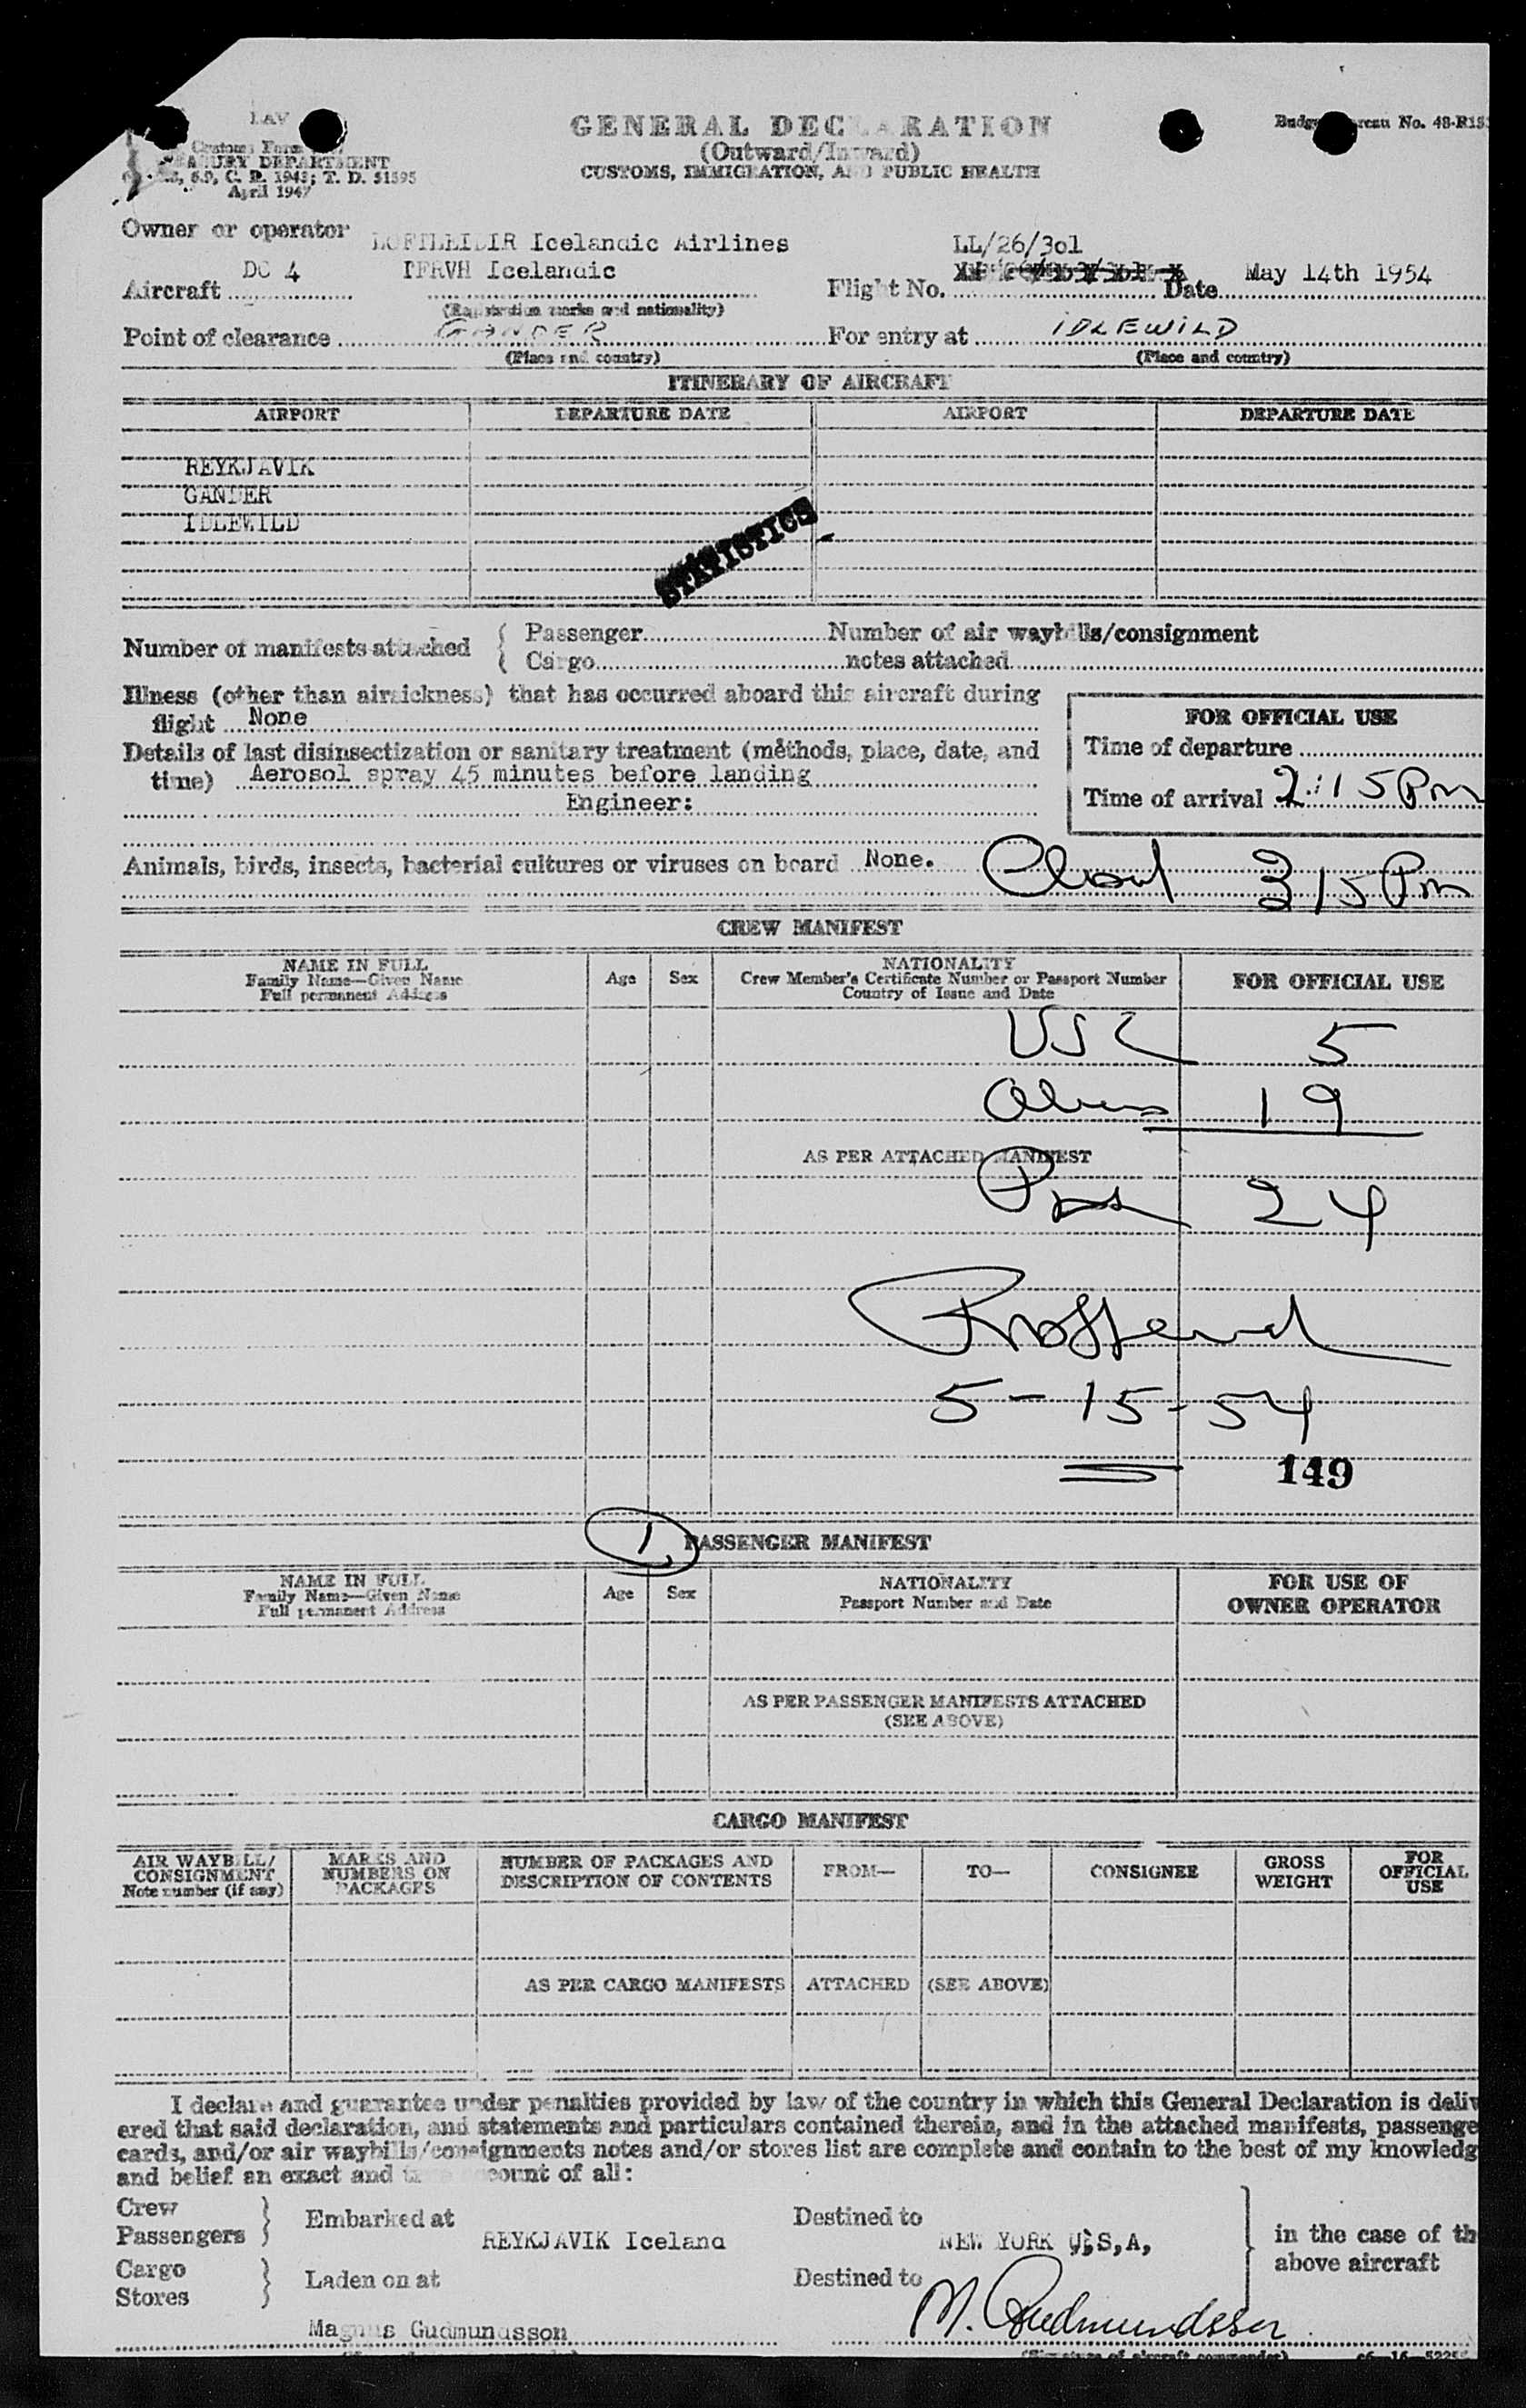 LAV
GENERAL DECLARATION
Budget Bureau No. 48-R15
Customs Form
(Outward/Inward)
TREASURY DEPARTMENT
CUSTOMS, IMMIGRATION, AND PUBLIC HEALTH
C. R. 1945; T. D. 51595
April 1947
Owner or operator LOFTLEIDIR Icelandic Airlines
LL/26/3o1
Aircraft DC 4 IFRVH Icelandic Flight No. Date May 14th 1954
(Registration marks and nationality)
Point of clearance GANDER For entry at IDLEWILD
(Place and country) (Place and country)
ITINERARY OF AIRCRAFT
AIRPORT DEPARTURE DATE AIRPORT DEPARTURE DATE
REYKJAVIK
GANDER
IDLEWILD
STATISTICS
Number of manifests attached { Passenger Number of air waybills/consignment
Cargo notes attached
Illness (other than airsickness) that has occurred aboard this aircraft during
flight None
FOR OFFICIAL USE
Details of last disinsectization or sanitary treatment (methods, place, date, and
time) Aerosol spray 45 minutes before landing
Time of departure
Engineer:
Time of arrival 2:15 Pm
Animals, birds, insects, bacterial cultures or viruses on board None.
315 Pm
CREW MANIFEST
NAME IN FULL
Family Name—Given Name
Full permanent Address
Age Sex
NATIONALITY
Crew Member's Certificate Number or Passport Number
Country of Issue and Date
FOR OFFICIAL USE
USC 5
Aliens 19
AS PER ATTACHED MANIFEST
Pass 24
5-15-54
149
1
PASSENGER MANIFEST
NAME IN FULL
Family Name—Given Name
Full permanent Address
Age Sex
NATIONALITY
Passport Number and Date
FOR USE OF
OWNER OPERATOR
AS PER PASSENGER MANIFESTS ATTACHED
(SEE ABOVE)
CARGO MANIFEST
AIR WAYBILL/
CONSIGNMENT
Note number (if any)
MARKS AND
NUMBERS ON
PACKAGES
NUMBER OF PACKAGES AND
DESCRIPTION OF CONTENTS
FROM—
TO—
CONSIGNEE
GROSS
WEIGHT
FOR
OFFICIAL
USE
AS PER CARGO MANIFESTS ATTACHED (SEE ABOVE)
I declare and guarantee under penalties provided by law of the country in which this General Declaration is deliv
ered that said declaration, and statements and particulars contained therein, and in the attached manifests, passenge
cards, and/or air waybills/consignments notes and/or stores list are complete and contain to the best of my knowledg
and belief an exact and true account of all:
Crew
Passengers } Embarked at REYKJAVIK Iceland Destined to NEW YORK U,S,A,
in the case of th
above aircraft
Cargo
Stores } Laden on at Destined to
Magnus Gudmundsson M. Gudmundsson
(Signature of aircraft commander)